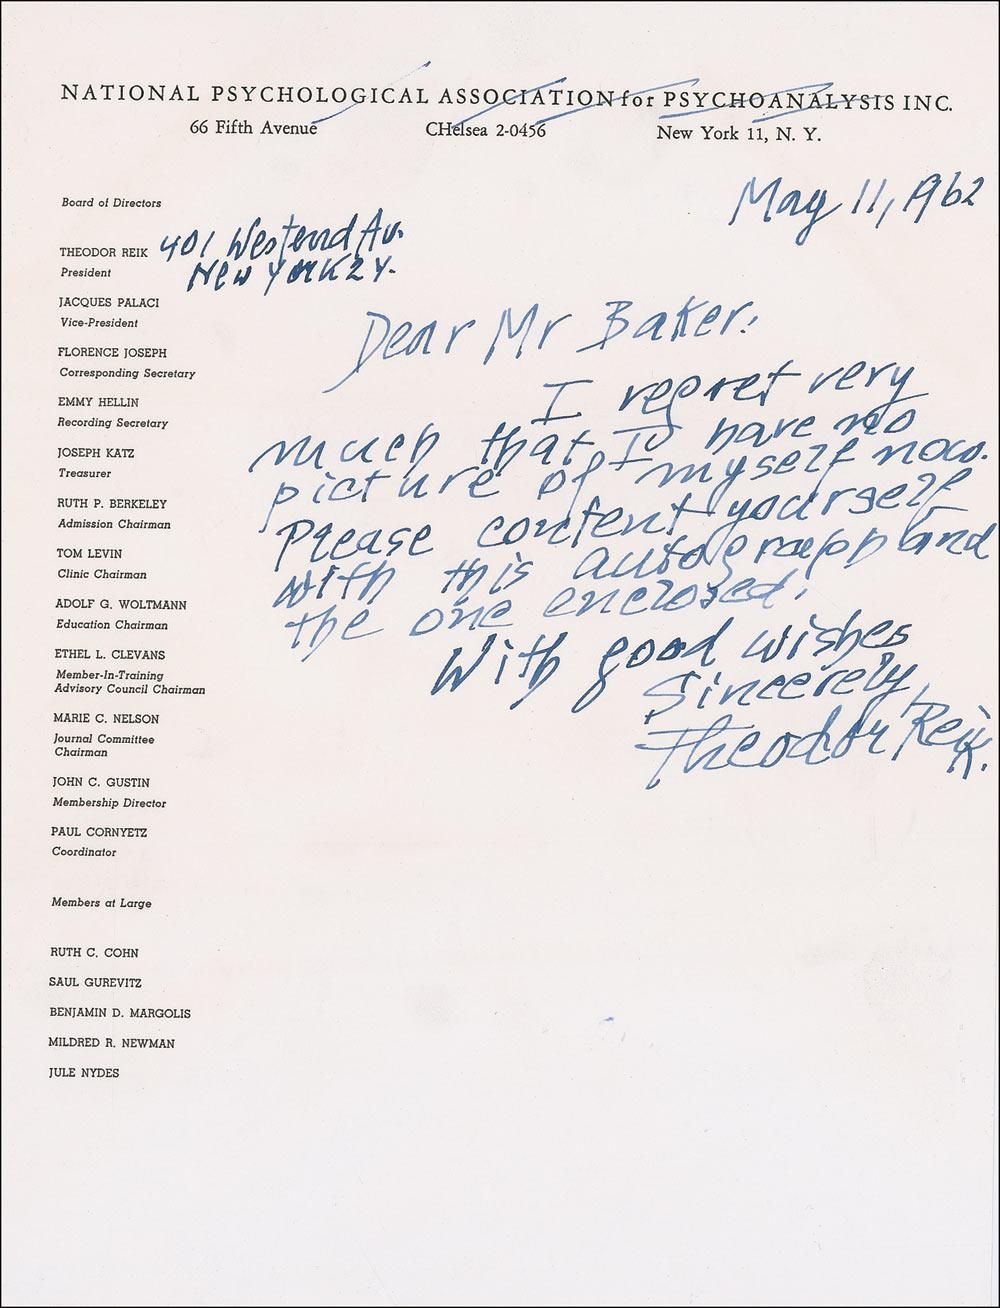 NATIONAL PSYCHOLOGICAL ASSOCIATION for PSYCHOANALYSIS INC.
66 Fifth Avenue CHelsea 2-0456 New York 11, N. Y.
May 11, 1962
Board of Directors
THEODOR REIK 401 Westend Av.
President New York 24.
JACQUES PALACI
Vice-President
FLORENCE JOSEPH
Corresponding Secretary
EMMY HELLIN
Recording Secretary
JOSEPH KATZ
Treasurer
RUTH P. BERKELEY
Admission Chairman
TOM LEVIN
Clinic Chairman
ADOLF G. WOLTMANN
Education Chairman
ETHEL L. CLEVANS
Member-In-Training
Advisory Council Chairman
MARIE C. NELSON
Journal Committee
Chairman
JOHN C. GUSTIN
Membership Director
PAUL CORNYETZ
Coordinator
Members at Large
RUTH C. COHN
SAUL GUREVITZ
BENJAMIN D. MARGOLIS
MILDRED R. NEWMAN
JULE NYDES
Dear Mr Baker:
I regret very
much that I have no
picture of myself now.
Please content yourself
with this autograph and
the one enclosed.
With good wishes
Sincerely,
Theodor Reik.